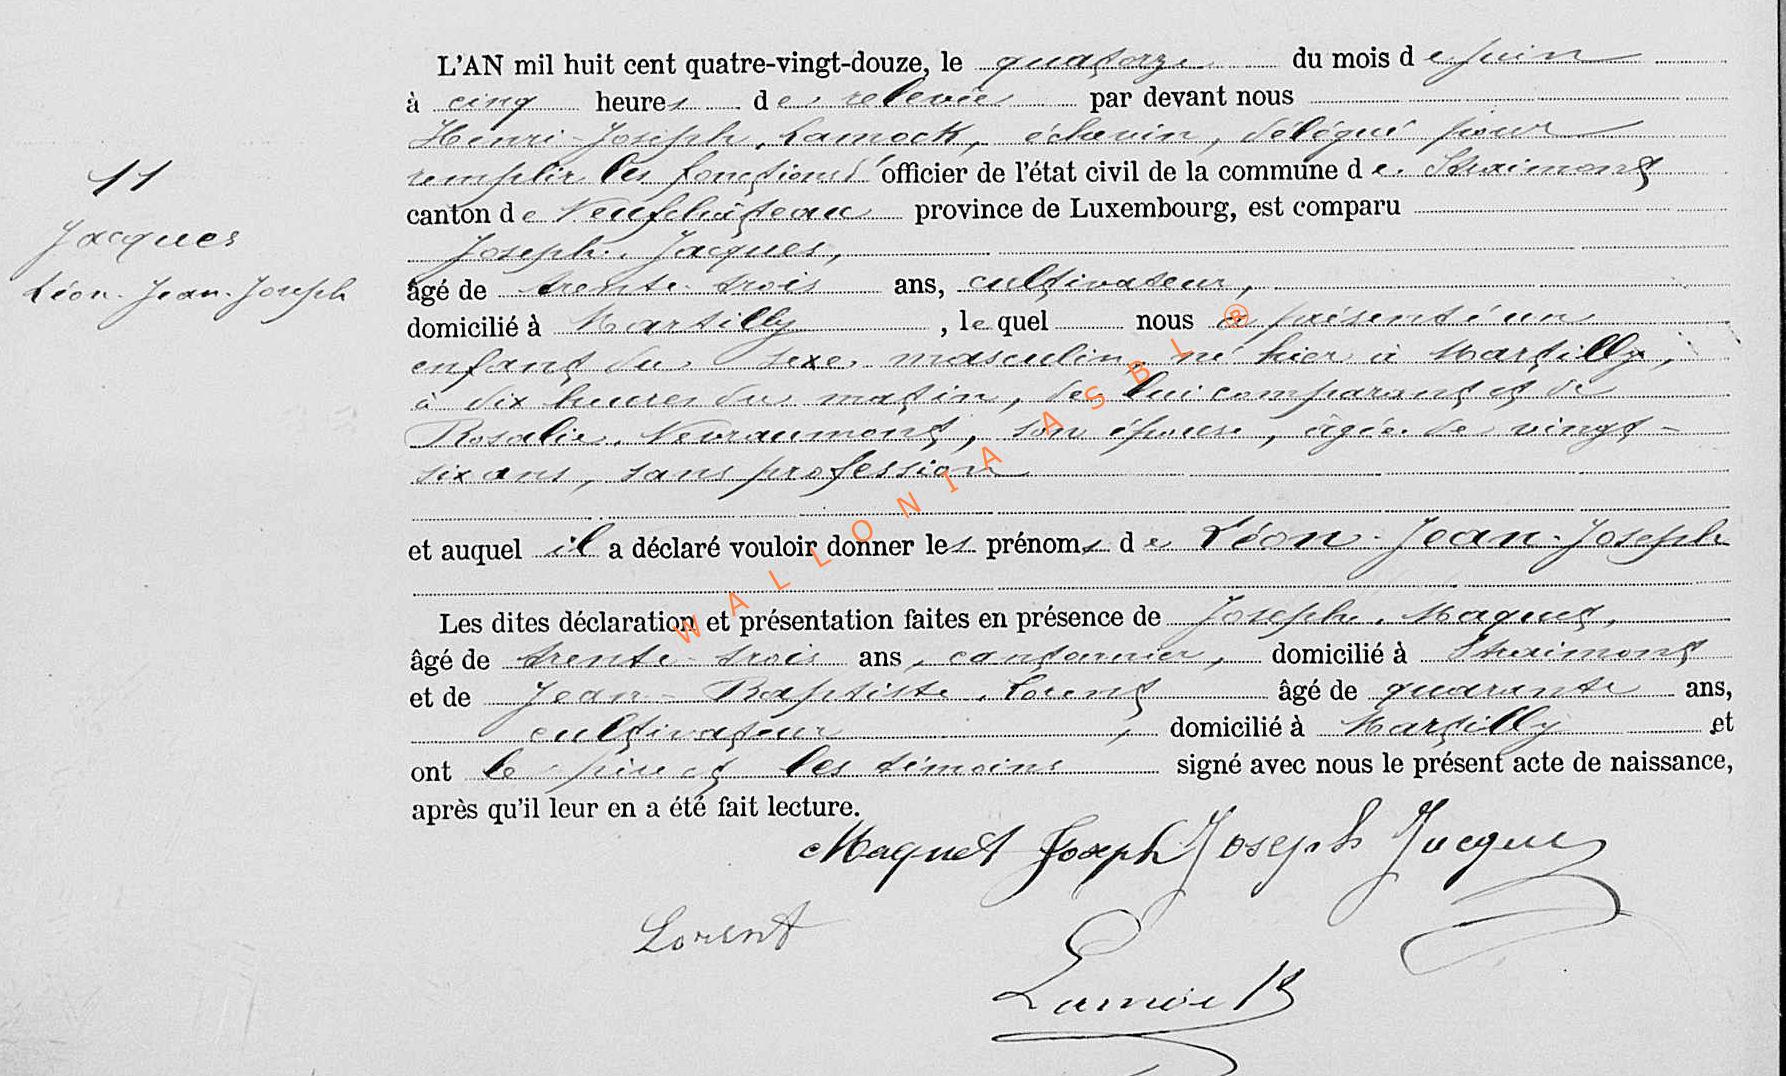 L'AN mil huit cent quatre-vingt-douze, le quatorze du mois de juin
à cinq heures de relevée par devant nous
Henri-Joseph, Lamock, échevin, délégué pour
remplir les fonctions d'officier de l'état civil de la commune de Straimont
canton de Neufchâteau province de Luxembourg, est comparu
Joseph Jacques,
âgé de trente-trois ans, cultivateur,
domicilié à Martilly, lequel nous a présenté un
enfant du sexe masculin, né hier à Martilly,
à dix heures du matin, de lui comparant et de
Rosalie Nevraumont, son épouse, âgée de vingt-
six ans, sans profession
et auquel il a déclaré vouloir donner les prénoms de Léon-Jean-Joseph
Les dites déclaration et présentation faites en présence de Joseph Maquet,
âgé de trente-trois ans, cantonnier, domicilié à Straimont
et de Jean-Baptiste Lorent âgé de quarante ans,
cultivateur, domicilié à Martilly et
ont le père et les témoins signé avec nous le présent acte de naissance,
après qu'il leur en a été fait lecture.
11
Jacques
Léon-Jean-Joseph
Maquet Joseph Joseph Jacques
Lorent
Lamock
WALLONIA ASBL ®